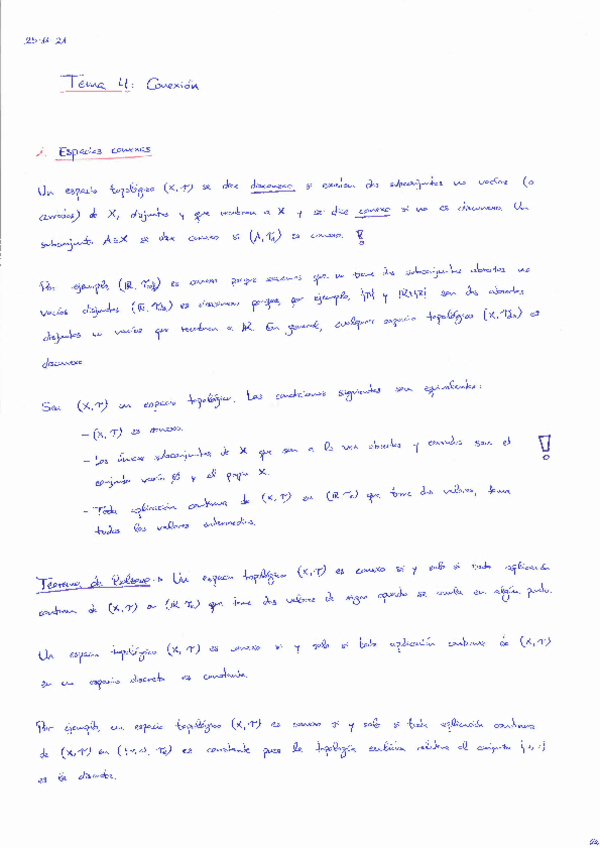 25-11-21
Tema 4: Conexión
1. Espacios conexos
Un espacio topológico (X, τ) se dice disconexo si existen dos subconjuntos no vacíos (o
cerrados) de X, disjuntos y que recubren a X y se dice conexo si no es disconexo. Un
subconjunto A⊆X se dice conexo si (A, τ) es conexo. !
Por ejemplo, (ℝ, τ) es conexo porque sabemos que no tiene dos subconjuntos abiertos no
vacíos disjuntos (ℝ, τ) es disconexo porque, por ejemplo, y son dos abiertos
disjuntos no vacíos que recubren a ℝ. En general, cualquier espacio topológico (X, τ) es
disconexo
Sea (X, τ) un espacio topológico. Las condiciones siguientes son equivalentes:
- (X, τ) es conexo.
- Los únicos subconjuntos de X que son a la vez abiertos y cerrados son el !
conjunto vacío ∅ y el propio X.
- Toda aplicación continua de (X, τ) en (ℝ, τ) que tome dos valores, toma
todos los valores intermedios.
Teorema de Bolzano: Un espacio topológico (X, τ) es conexo si y solo si toda aplicación
continua de (X, τ) en (ℝ, τ) que tome dos valores de signo opuesto se anula en algún punto.
Un espacio topológico (X, τ) es conexo si y solo si toda aplicación continua de (X, τ)
en un espacio discreto es constante.
Por ejemplo, un espacio topológico (X, τ) es conexo si y solo si toda aplicación continua
de (X, τ) en es constante pues la topología euclídea sobre el conjunto
es la discreta.